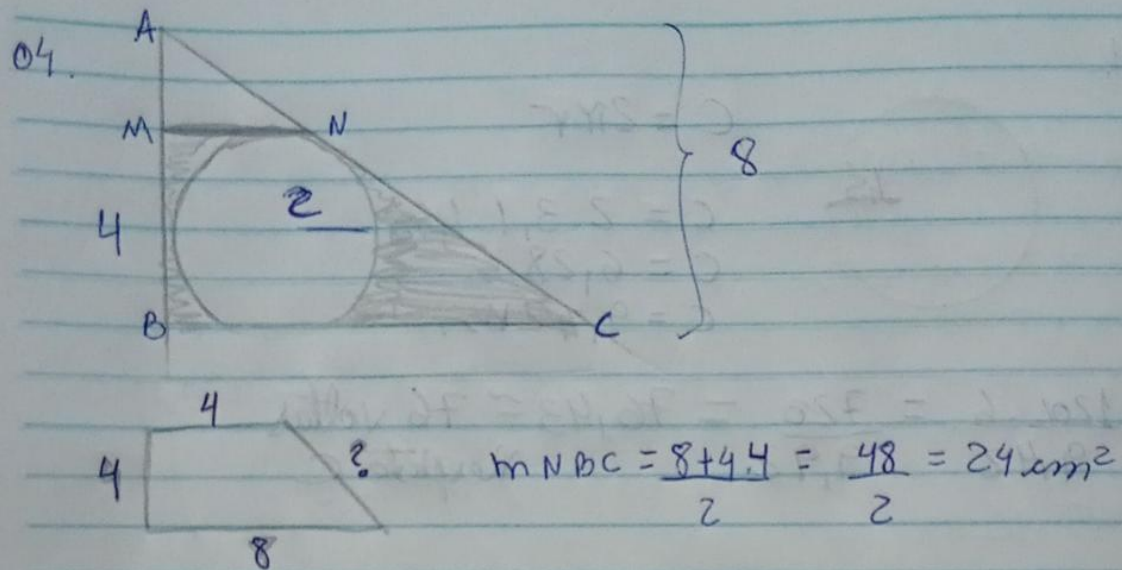 04.
A
M N
8
2
4
B C
4
4 ?
8
mNBC = 8+4.4 / 2 = 48 / 2 = 24 cm²